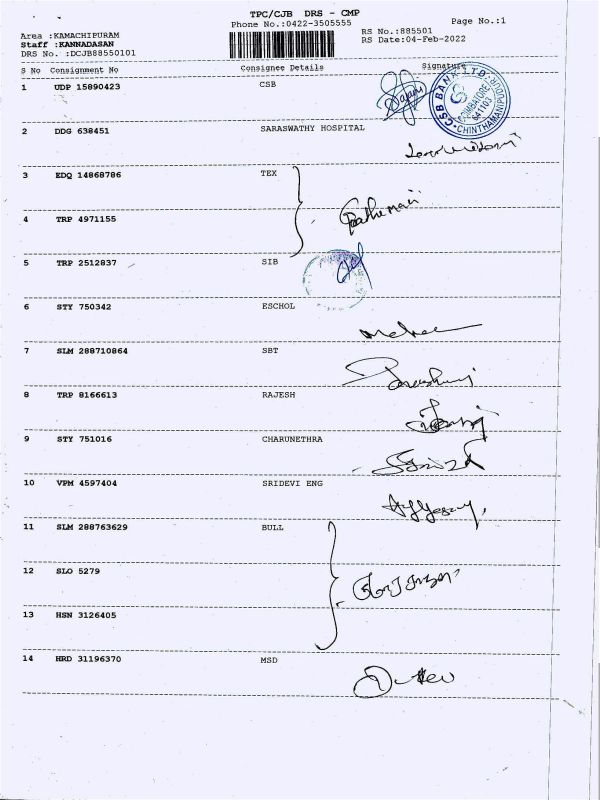 TPC/CJB DRS - CMP
Phone No.:0422-3505555
Page No.:1
Area :KAMACHIPURAM
Staff :KANNADASAN
DRS No. :DCJB88550101
RS No.:885501
RS Date:04-Feb-2022
S No Consignment No Consignee Details Signature
1 UDP 15890423 CSB
CSB BANK LTD.
COIMBATORE
641103
2 DDG 638451 SARASWATHY HOSPITAL
3 EDQ 14868786 TEX
4 TRP 4971155
5 TRP 2512837 SIB
6 STY 750342 ESCHOL
7 SLM 288710864 SBT
8 TRP 8166613 RAJESH
9 STY 751016 CHARUNETHRA
10 VPM 4597404 SRIDEVI ENG
11 SLM 288763629 BULL
12 SLO 5279
13 HSN 3126405
14 HRD 31196370 MSD